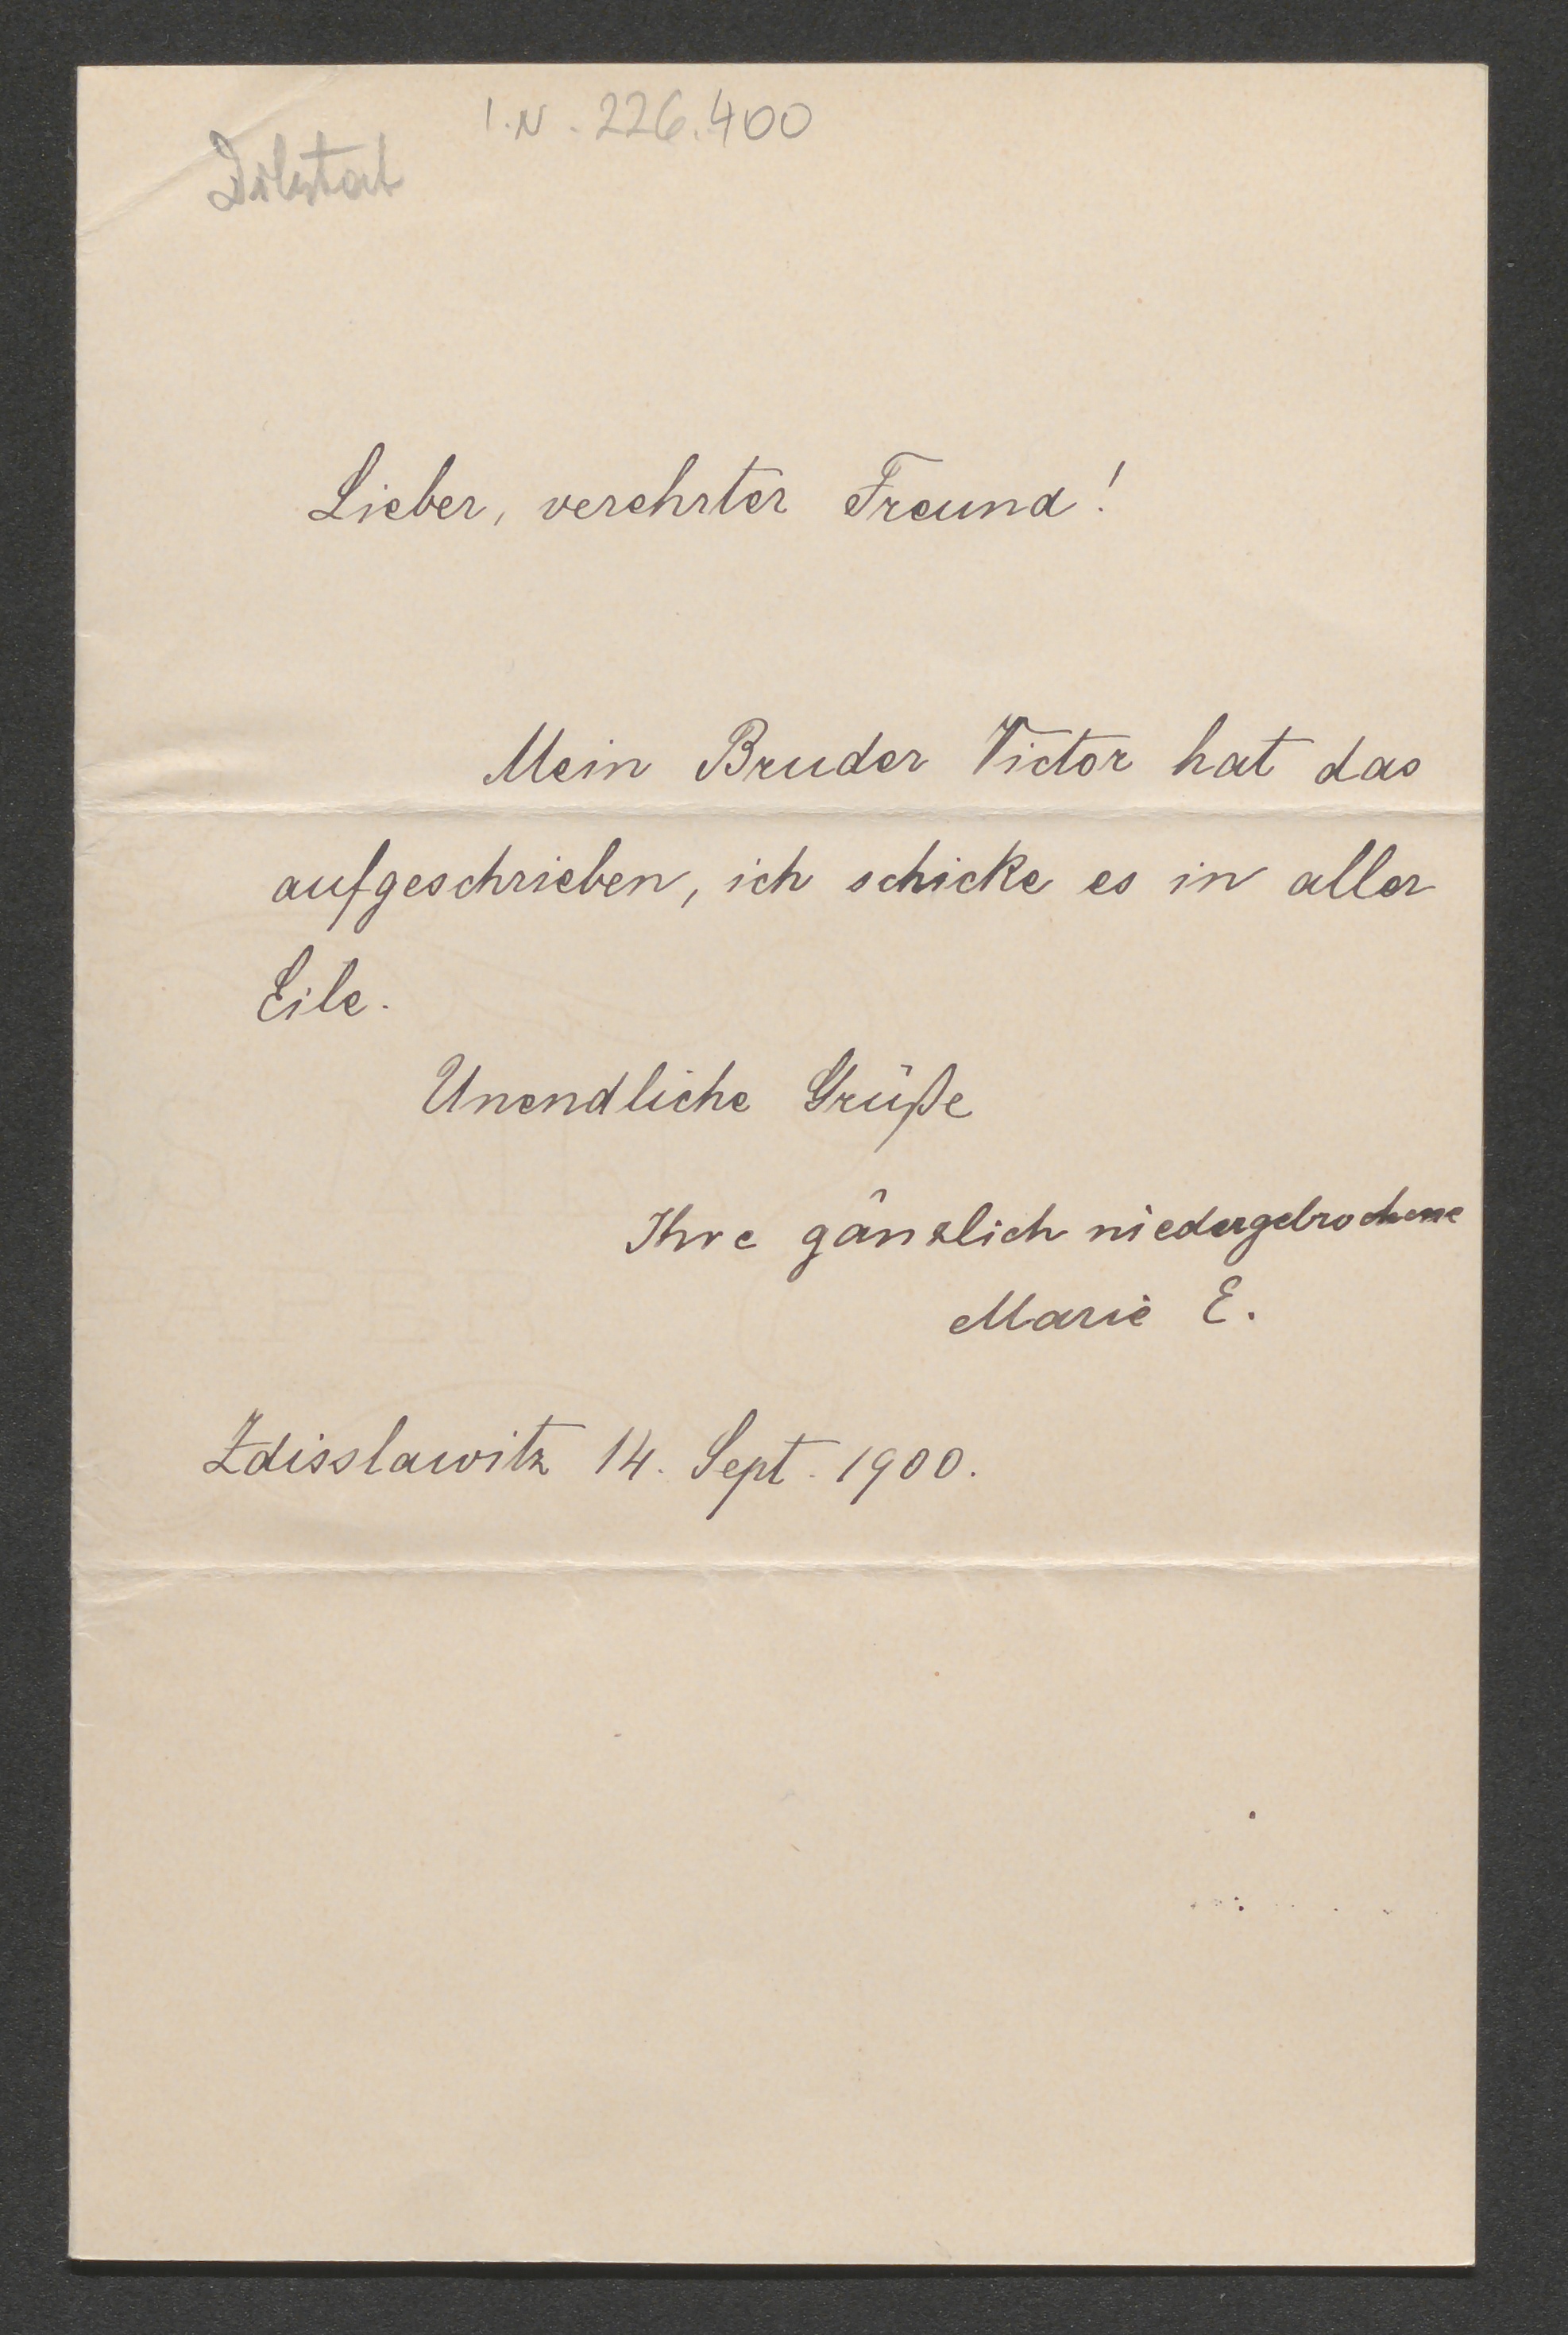 I.N. 226.400
Diktat
Lieber, verehrter Freund!
Mein Bruder Victor hat das
aufgeschrieben, ich schicke es in aller
Eile.
Unendliche Grüße
Ihre gänzlich niedergebrochene
Marie E.
Zdisslawitz 14. Sept. 1900.